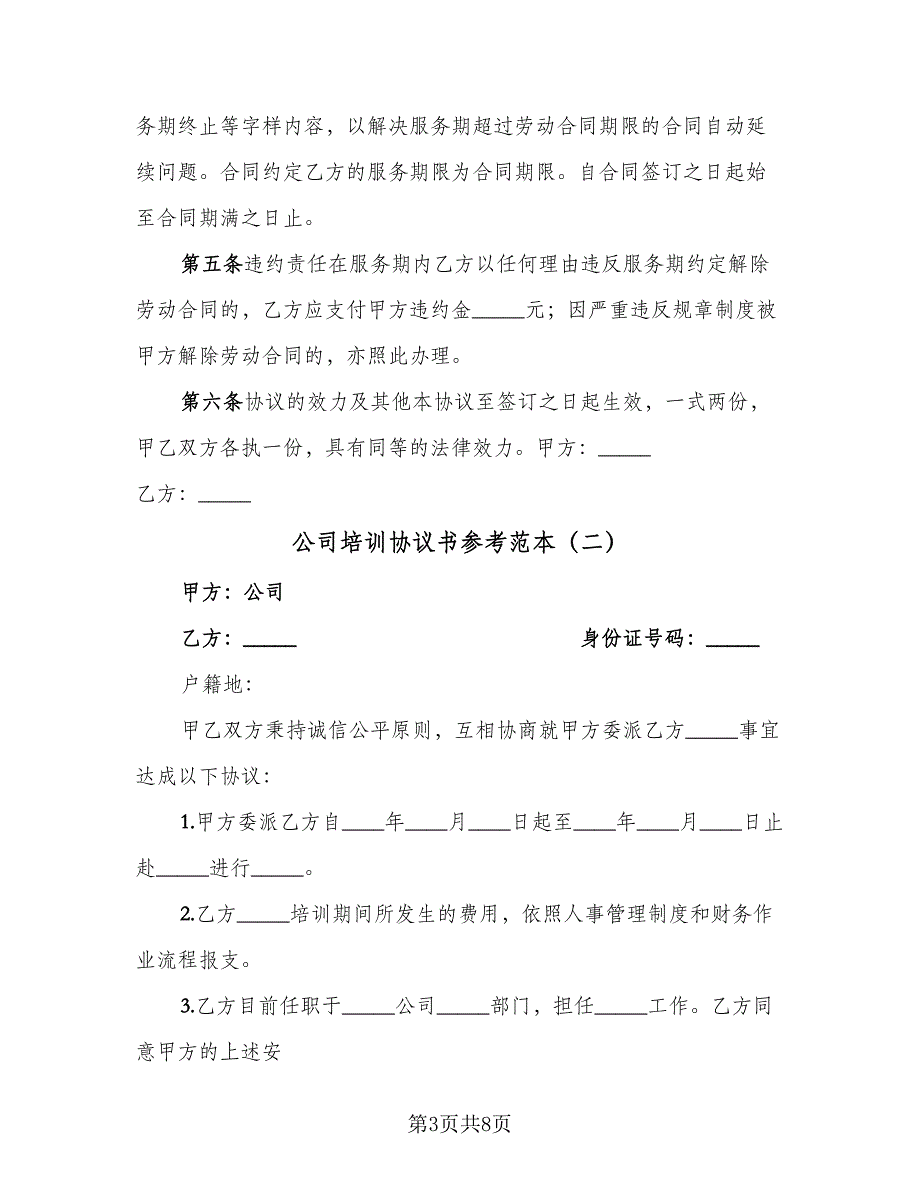 务期终止等字样内容，以解决服务期超过劳动合同期限的合同自动延
续问题。合同约定乙方的服务期限为合同期限。自合同签订之日起始
至合同期满之日止。
第五条违约责任在服务期内乙方以任何理由违反服务期约定解除
劳动合同的，乙方应支付甲方违约金_____元；因严重违反规章制度被
甲方解除劳动合同的，亦照此办理。
第六条协议的效力及其他本协议至签订之日起生效，一式两份，
甲乙双方各执一份，具有同等的法律效力。甲方：_____
乙方：_____
公司培训协议书参考范本（二）
甲方：公司
乙方：_____ 身份证号码：_____
户籍地：
甲乙双方秉持诚信公平原则，互相协商就甲方委派乙方_____事宜
达成以下协议：
1.甲方委派乙方自____年____月____日起至____年____月____日止
赴_____进行_____。
2.乙方_____培训期间所发生的费用，依照人事管理制度和财务作
业流程报支。
3.乙方目前任职于_____公司_____部门，担任_____工作。乙方同
意甲方的上述安
第3页共8页